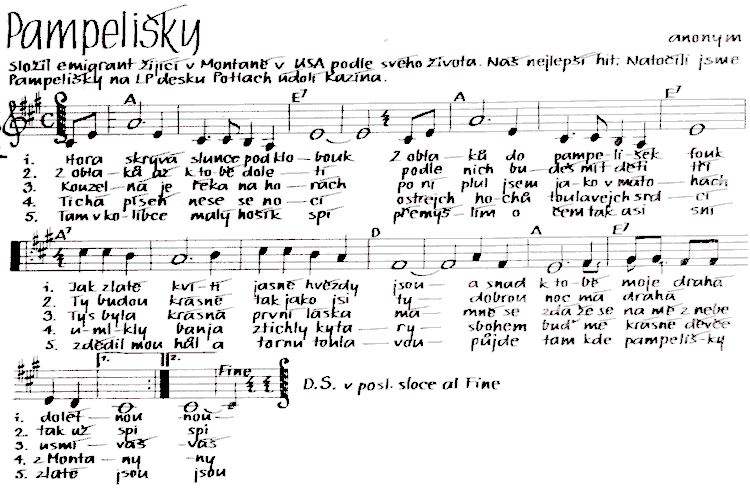 Pampelišky
anonym
Složil emigrant žijící v Montaně v USA podle svého života. Náš nejlepší hit. Natočili jsme
Pampelišky na LP desku Potlach údolí Kazína.
A E⁷ A E⁷
1. Hora skrývá slunce pod klo - bouk z obla - ků do pampe - li - šek fouk
2. Z obla - ků až k to - bě dole - tí podle nich bu - deš mít dětí tři
3. Kouzel - ná je řeka na ho - rách po ní plul jsem ja - ko v máto - hách
4. Tichá píseň nese se no - cí ostrejch ho - chů toulavejch srd - cí
5. Tam v ko - líbce malý hošík spí přemýš - lím o čem tak asi sní
A⁷ D A E⁷
1. Jak zlaté kví - tí jasné hvězdy jsou - a snad k to - bě moje drahá
2. Ty budou krásné tak jako jsi ty - dobrou noc má drahá
3. Tys byla krásná první láska má - mně se zdá že se na mě z nebe
4. u - mlkly banja ztichly kyta - ry - sbohem buď mé krásné děvče
5. zdědil mou hůl a tornu toula - vou - půjde tam kde pampeliš - ky
1. 2. Fine
D.S. v posl. sloce al Fine
1. dolét - nou nou
2. tak už spi spi
3. usmí - váš - váš
4. z Monta - ny - ny
5. zlaté jsou jsou